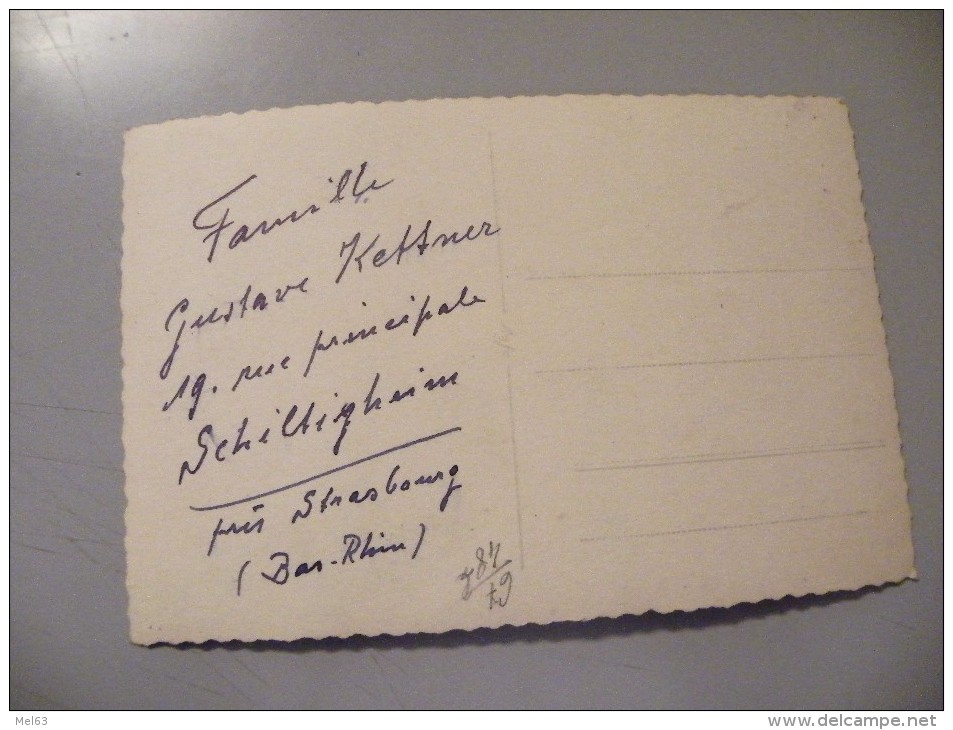 Famille
Gustave Kettner
19. rue principale
Schiltigheim
près Strasbourg
(Bas-Rhin)
67
Mel63
www.delcampe.net